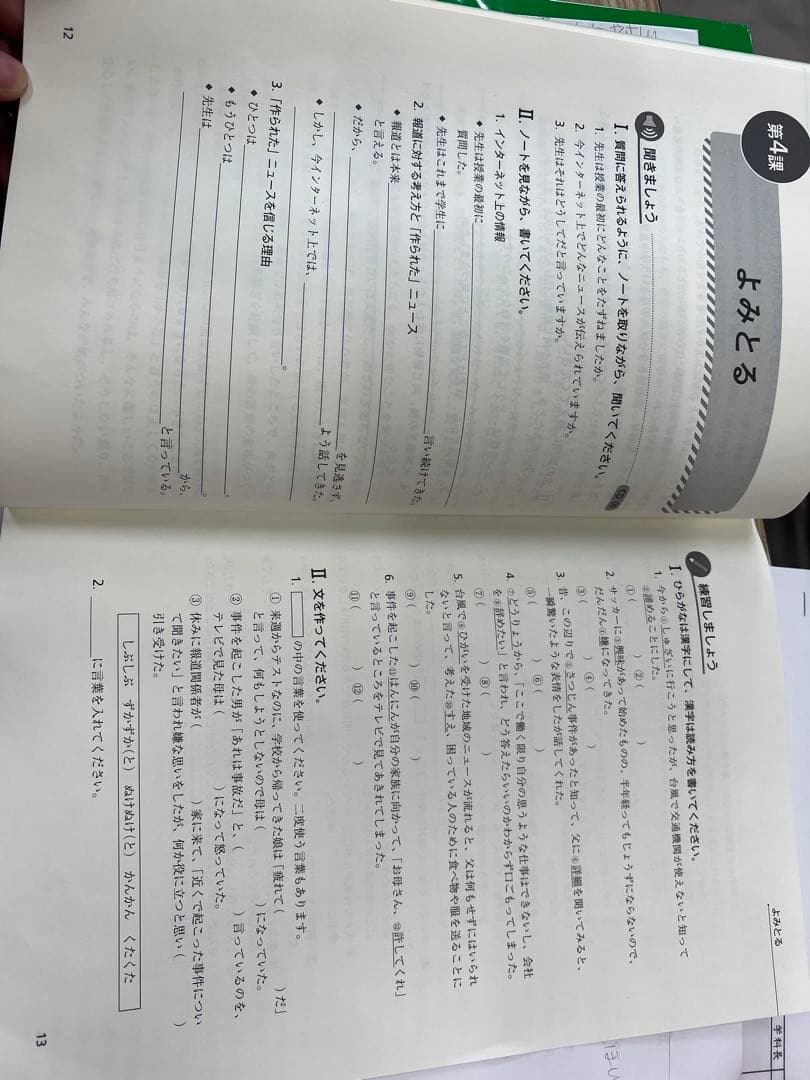 第4課
よみとる
聞きましょう
CD
Ⅰ. 質問に答えられるように、ノートを取りながら、聞いてください。
1. 先生は授業の最初にどんなことをたずねましたか。
2. 今インターネット上でどんなニュースが伝えられていますか。
3. 先生はそれはどうしてだと言っていますか。
Ⅱ. ノートを見ながら、書いてください。
1. インターネット上の情報
◆ 先生は授業の最初に
質問した。
◆ 先生はこれまで学生に 言い続けてきた。
2. 報道に対する考え方と「作られた」ニュース
◆ 報道とは本来
と言える。
◆ だから、 を見逃さず、
よう話してきた。
◆ しかし、今インターネット上では、
。
3. 「作られた」ニュースを信じる理由
◆ ひとつは 。
◆ もうひとつは 。
◆ 先生は から、
と言っている。
12
よみとる
練習しましょう
Ⅰ. ひらがなは漢字にして、漢字は読み方を書いてください。
1. 今から①しゅざいに行こうと思ったが、台風で交通機関が使えないと知って
②諦めることにした。
①( ) ②( )
2. サッカーに③興味があって始めたものの、半年経ってもじょうずにならないので、
だんだん④嫌になってきた。
③( ) ④( )
3. 昔、この辺りで⑤さつじん事件があったと知って、父に⑥詳細を聞いてみると、
一瞬驚いたような表情をしたが話してくれた。
⑤( ) ⑥( )
4. ⑦どうりょうから、「ここで働く限り自分の思うような仕事はできないし、会社
を⑧辞めたい」と言われ、どう答えたらいいのかわからず口ごもってしまった。
⑦( ) ⑧( )
5. 台風で⑨ひがいを受けた地域のニュースが流れると、父は何もせずにはいられ
ないと言って、考えた⑩すえ、困っている人のために食べ物や服を送ることに
した。
⑨( ) ⑩( )
6. 事件を起こした⑪はんにんが自分の家族に向かって、「お母さん、⑫許してくれ」
と言っているところをテレビで見てあきれてしまった。
⑪( ) ⑫( )
Ⅱ. 文を作ってください。
1. の中の言葉を使ってください。二度使う言葉もあります。
① 来週からテストなのに、学校から帰ってきた娘は「疲れて( )だ」
と言って、何もしようとしないので母は( )になっていた。
② 事件を起こした男が「あれは事故だ」と、( )言っているのを、
テレビで見た母は( )になって怒っていた。
③ 休みに報道関係者が( )家に来て、「近くで起こった事件につい
て聞きたい」と言われ嫌な思いをしたが、何か役に立つと思い( )
引き受けた。
しぶしぶ ずかずか(と) ぬけぬけ(と) かんかん くたくた
2. に言葉を入れてください。
13
学科長